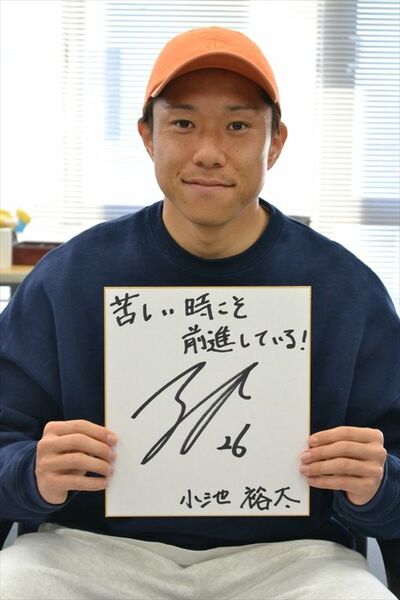 苦しい時こそ
前進している!
26
小池 裕太